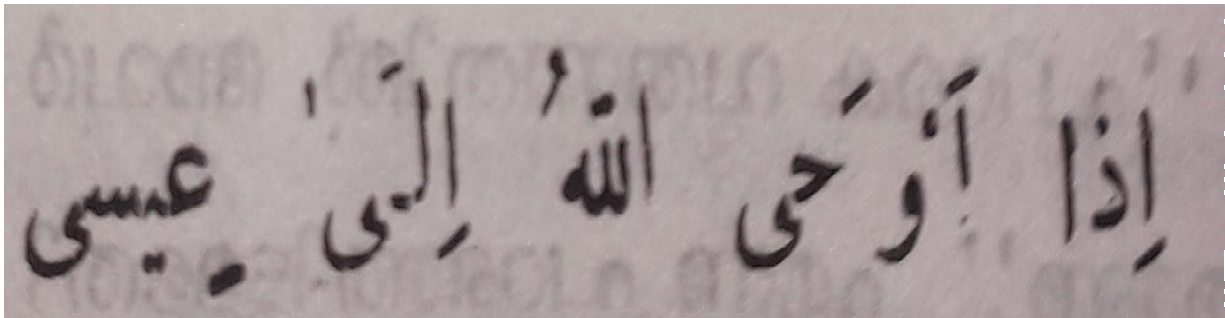 اِذَا أَوْحَى اللّٰهُ اِلَىٰ عِيسى